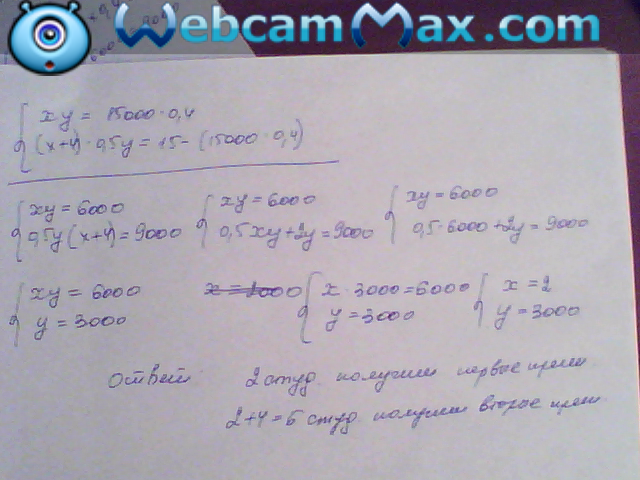 WebcamMax.com
xy = 15000·0,4
(x+4)·0,5y = 15-(15000·0,4)
xy = 6000 xy = 6000 xy = 6000
0,5y(x+4) = 9000 0,5xy+2y = 9000 0,5·6000+2y = 9000
xy = 6000 x·3000 = 6000 x = 2
y = 3000 y = 3000 y = 3000
ответ 2 студ. получили первые премии
2+4=6 студ получили вторые прем